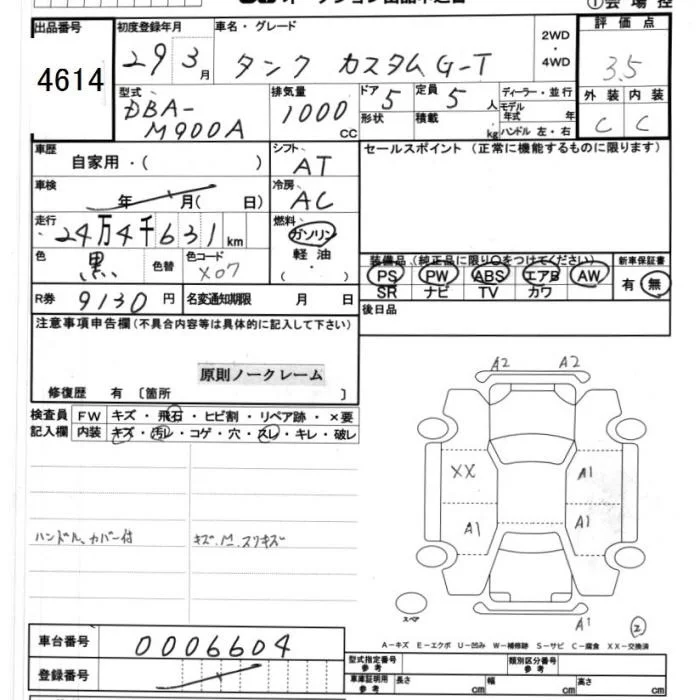 オークション出品申込書
①会場控
出品番号
4614
初度登録年月
29 3月
車名・グレード
タンク カスタムG-T
2WD
・
4WD
評価点
3.5
外装 内装
C C
型式
DBA-
M900A
排気量
1000
cc
ドア 5
定員 5 人
形状
積載 kg
ディーラー・並行
モデル
年式 年
ハンドル 左・右
車歴
自家用・( )
シフト
AT
セールスポイント(正常に機能するものに限ります)
車検
年 月( 日)
冷房
AC
走行
24万4千631km
燃料
ガソリン
軽油
・
( )
色
黒
色替
色コード
X07
装備品(純正品に限り○をつけてください)
PS PW ABS エアB AW
SR ナビ TV カワ
新車保証書
有 無
R券 9130円
名変通知期限 月 日
後日品
注意事項申告欄(不具合内容等は具体的に記入して下さい)
原則ノークレーム
修復歴 有〔箇所 〕
検査員
記入欄
FW キズ・飛石・ヒビ割・リペア跡・×要
内装 キズ・汚レ・コゲ・穴・スレ・キレ・破レ
ハンドル、カバー付
キズ.M.スリキズ
A2 A2
XX A1
A1 A1
スペア
A1 ②
A-キズ E-エクボ U-凹み W-補修跡 S-サビ C-腐食 XX-交換済
車台番号
0006604
登録番号
型式指定番号
参考
類別区分番号
参考
車庫証明用
参考
長さ cm 幅 cm 高さ cm